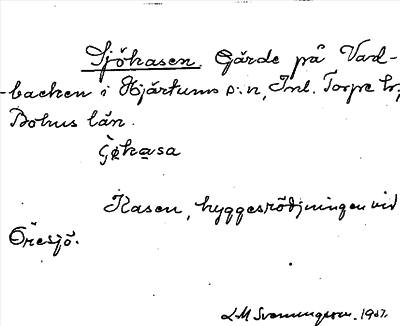 Sjökasen. Gärde på Vad-
-backen i Hjärtums s:n, Inl. Torpe hd,
Bohus län.
Kasen, hyggesrödjningen vid
Öresjö.
L M Svenungsson. 1907.